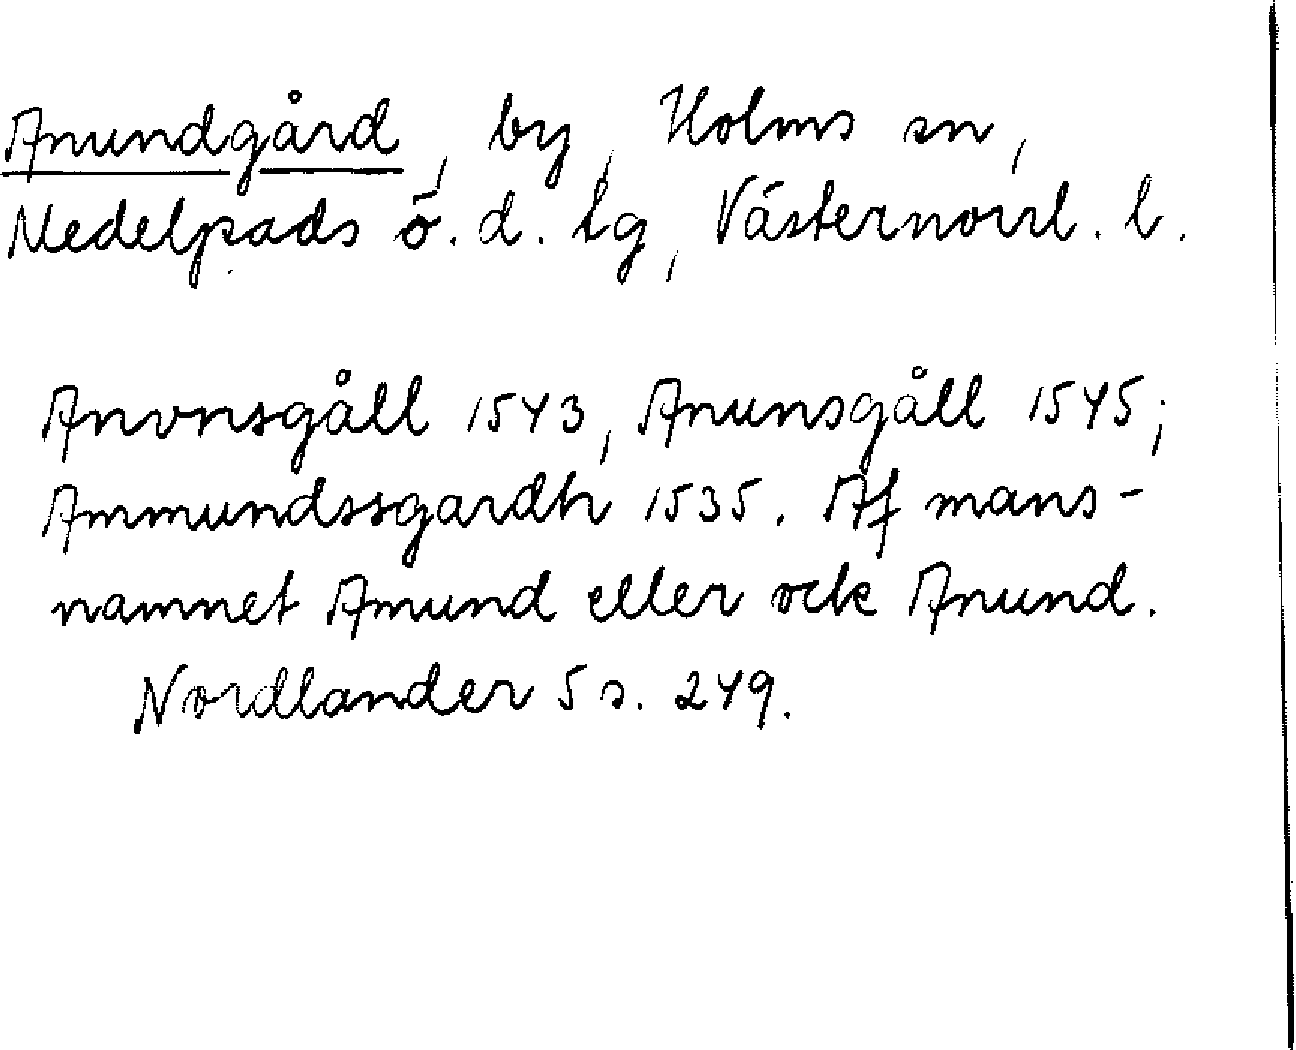 Anundgård, by, Holms sn,
Medelpads ö. d. tg, Västernorrl. l.
Anvnsgåll 1543, Anunsgåll 1545;
Ammundssgardh 1535. Af mans-
namnet Amund eller ock Anund.
Nordlander 5 s. 249.